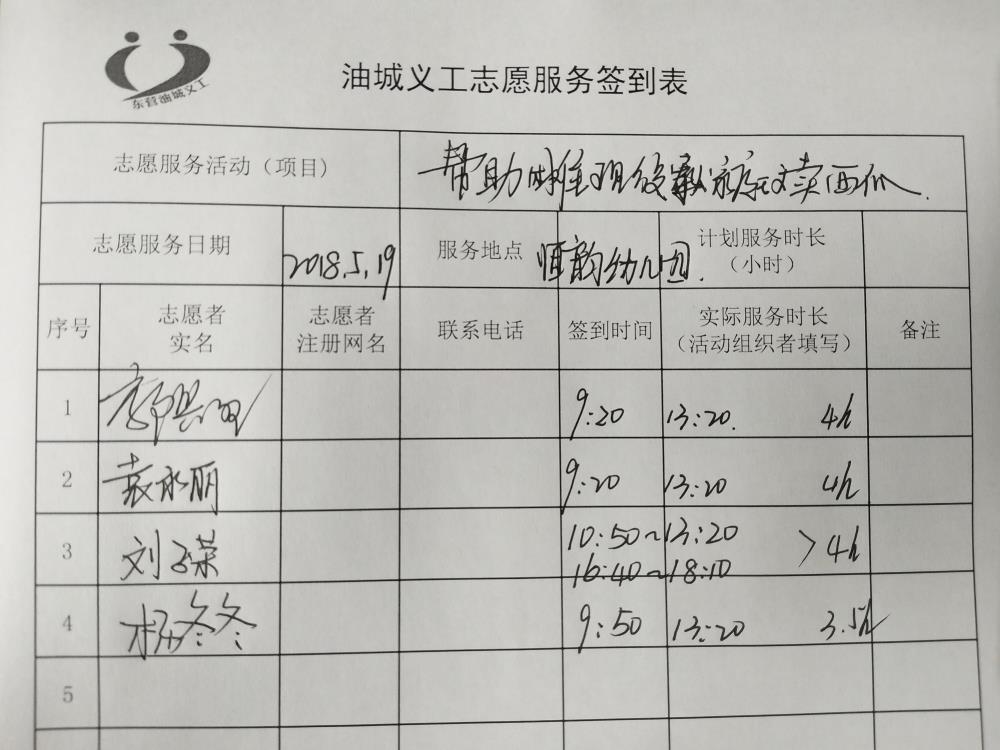 东营油城义工
油城义工志愿服务签到表
志愿服务活动（项目） 帮助 卖西瓜.
志愿服务日期 2018.5.19 服务地点 恒韵幼儿园. 计划服务时长（小时）
序号 志愿者实名 志愿者注册网名 联系电话 签到时间 实际服务时长（活动组织者填写） 备注
1 9:20 13:20. 4h
2 袁永丽 9:20 13:20 4h
3 刘子荣 10:50~13:20 16:40~18:10 >4h
4 杨冬冬 9:50 13:20 3.5h
5